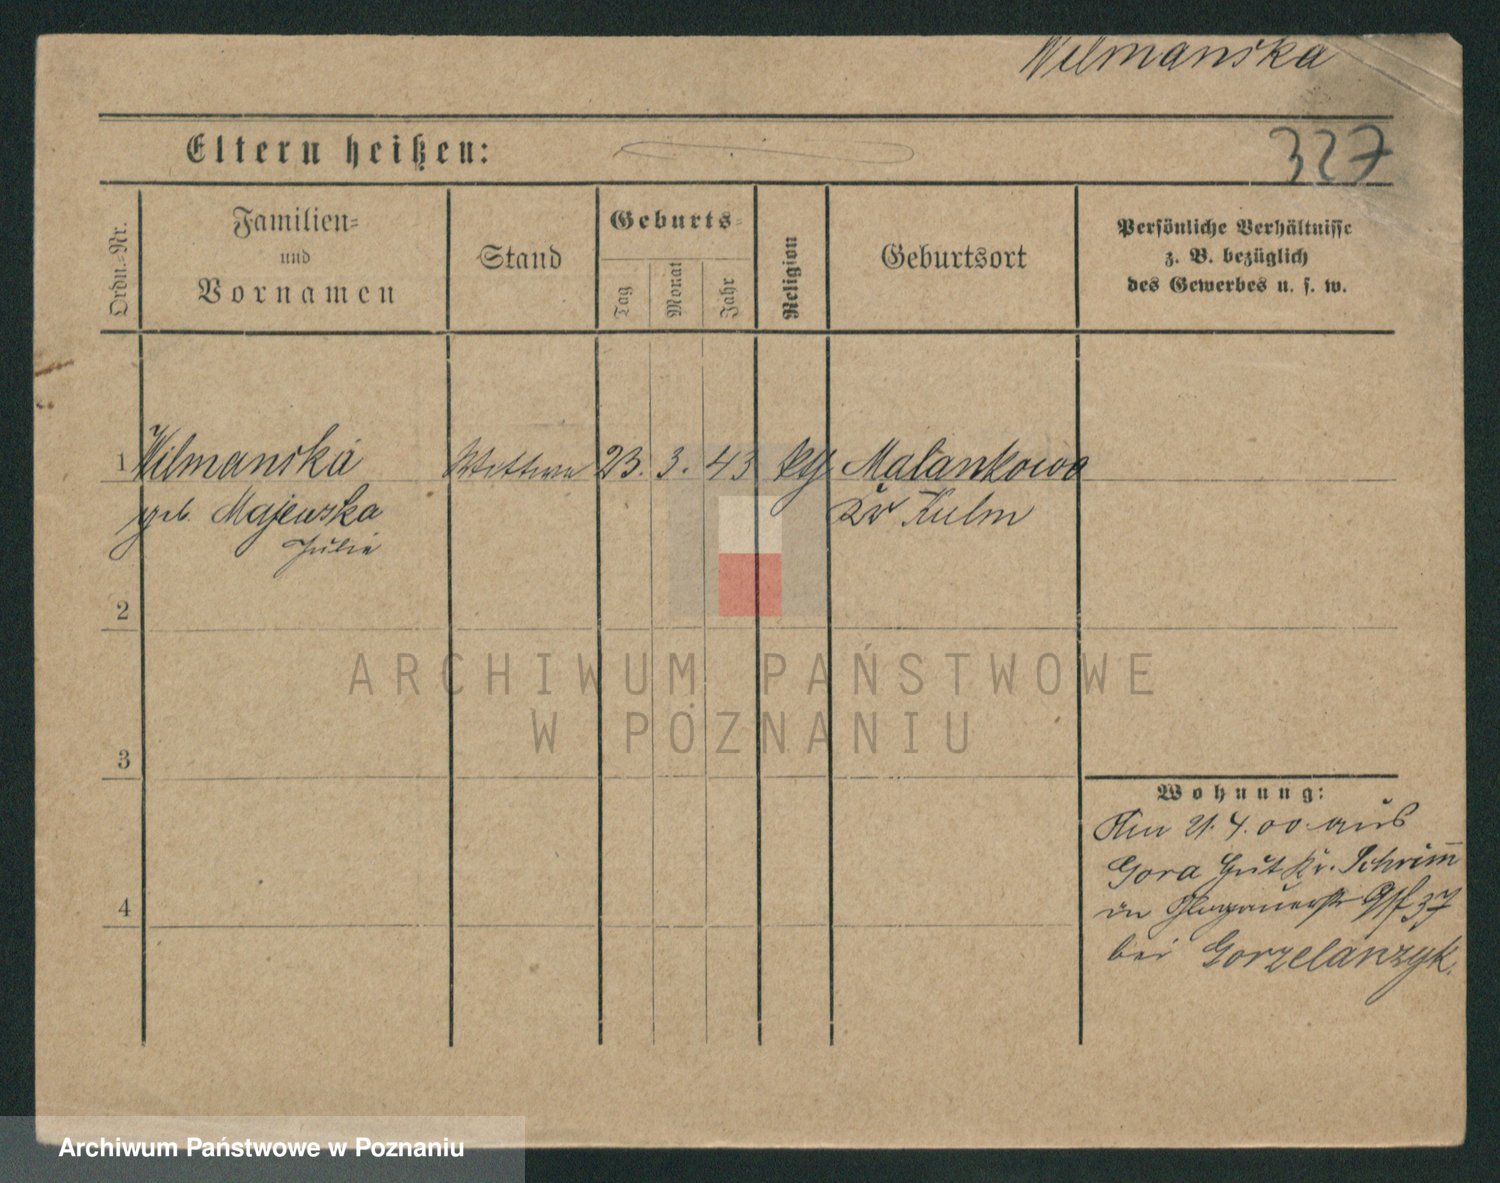 Wilmanska
Eltern heißen:
327
Ordn.-Nr.
Familien-
und
Vornamen
Stand
Geburts-
Tag
Monat
Jahr
Religion
Geburtsort
Persönliche Verhältnisse
z. B. bezüglich
des Gewerbes u. s. w.
1 Wilmanska Wittwe 23. 3. 43 Malankowo
geb. Majewska Kr Kulm
Julie
2
3
4
Wohnung:
Am 21. 4. 00 aus
Gora Gut Kr. Schrimm
in Glogauerstr 37
bei Gorzelanzyk.
ARCHIWUM PAŃSTWOWE
W POZNANIU
Archiwum Państwowe w Poznaniu